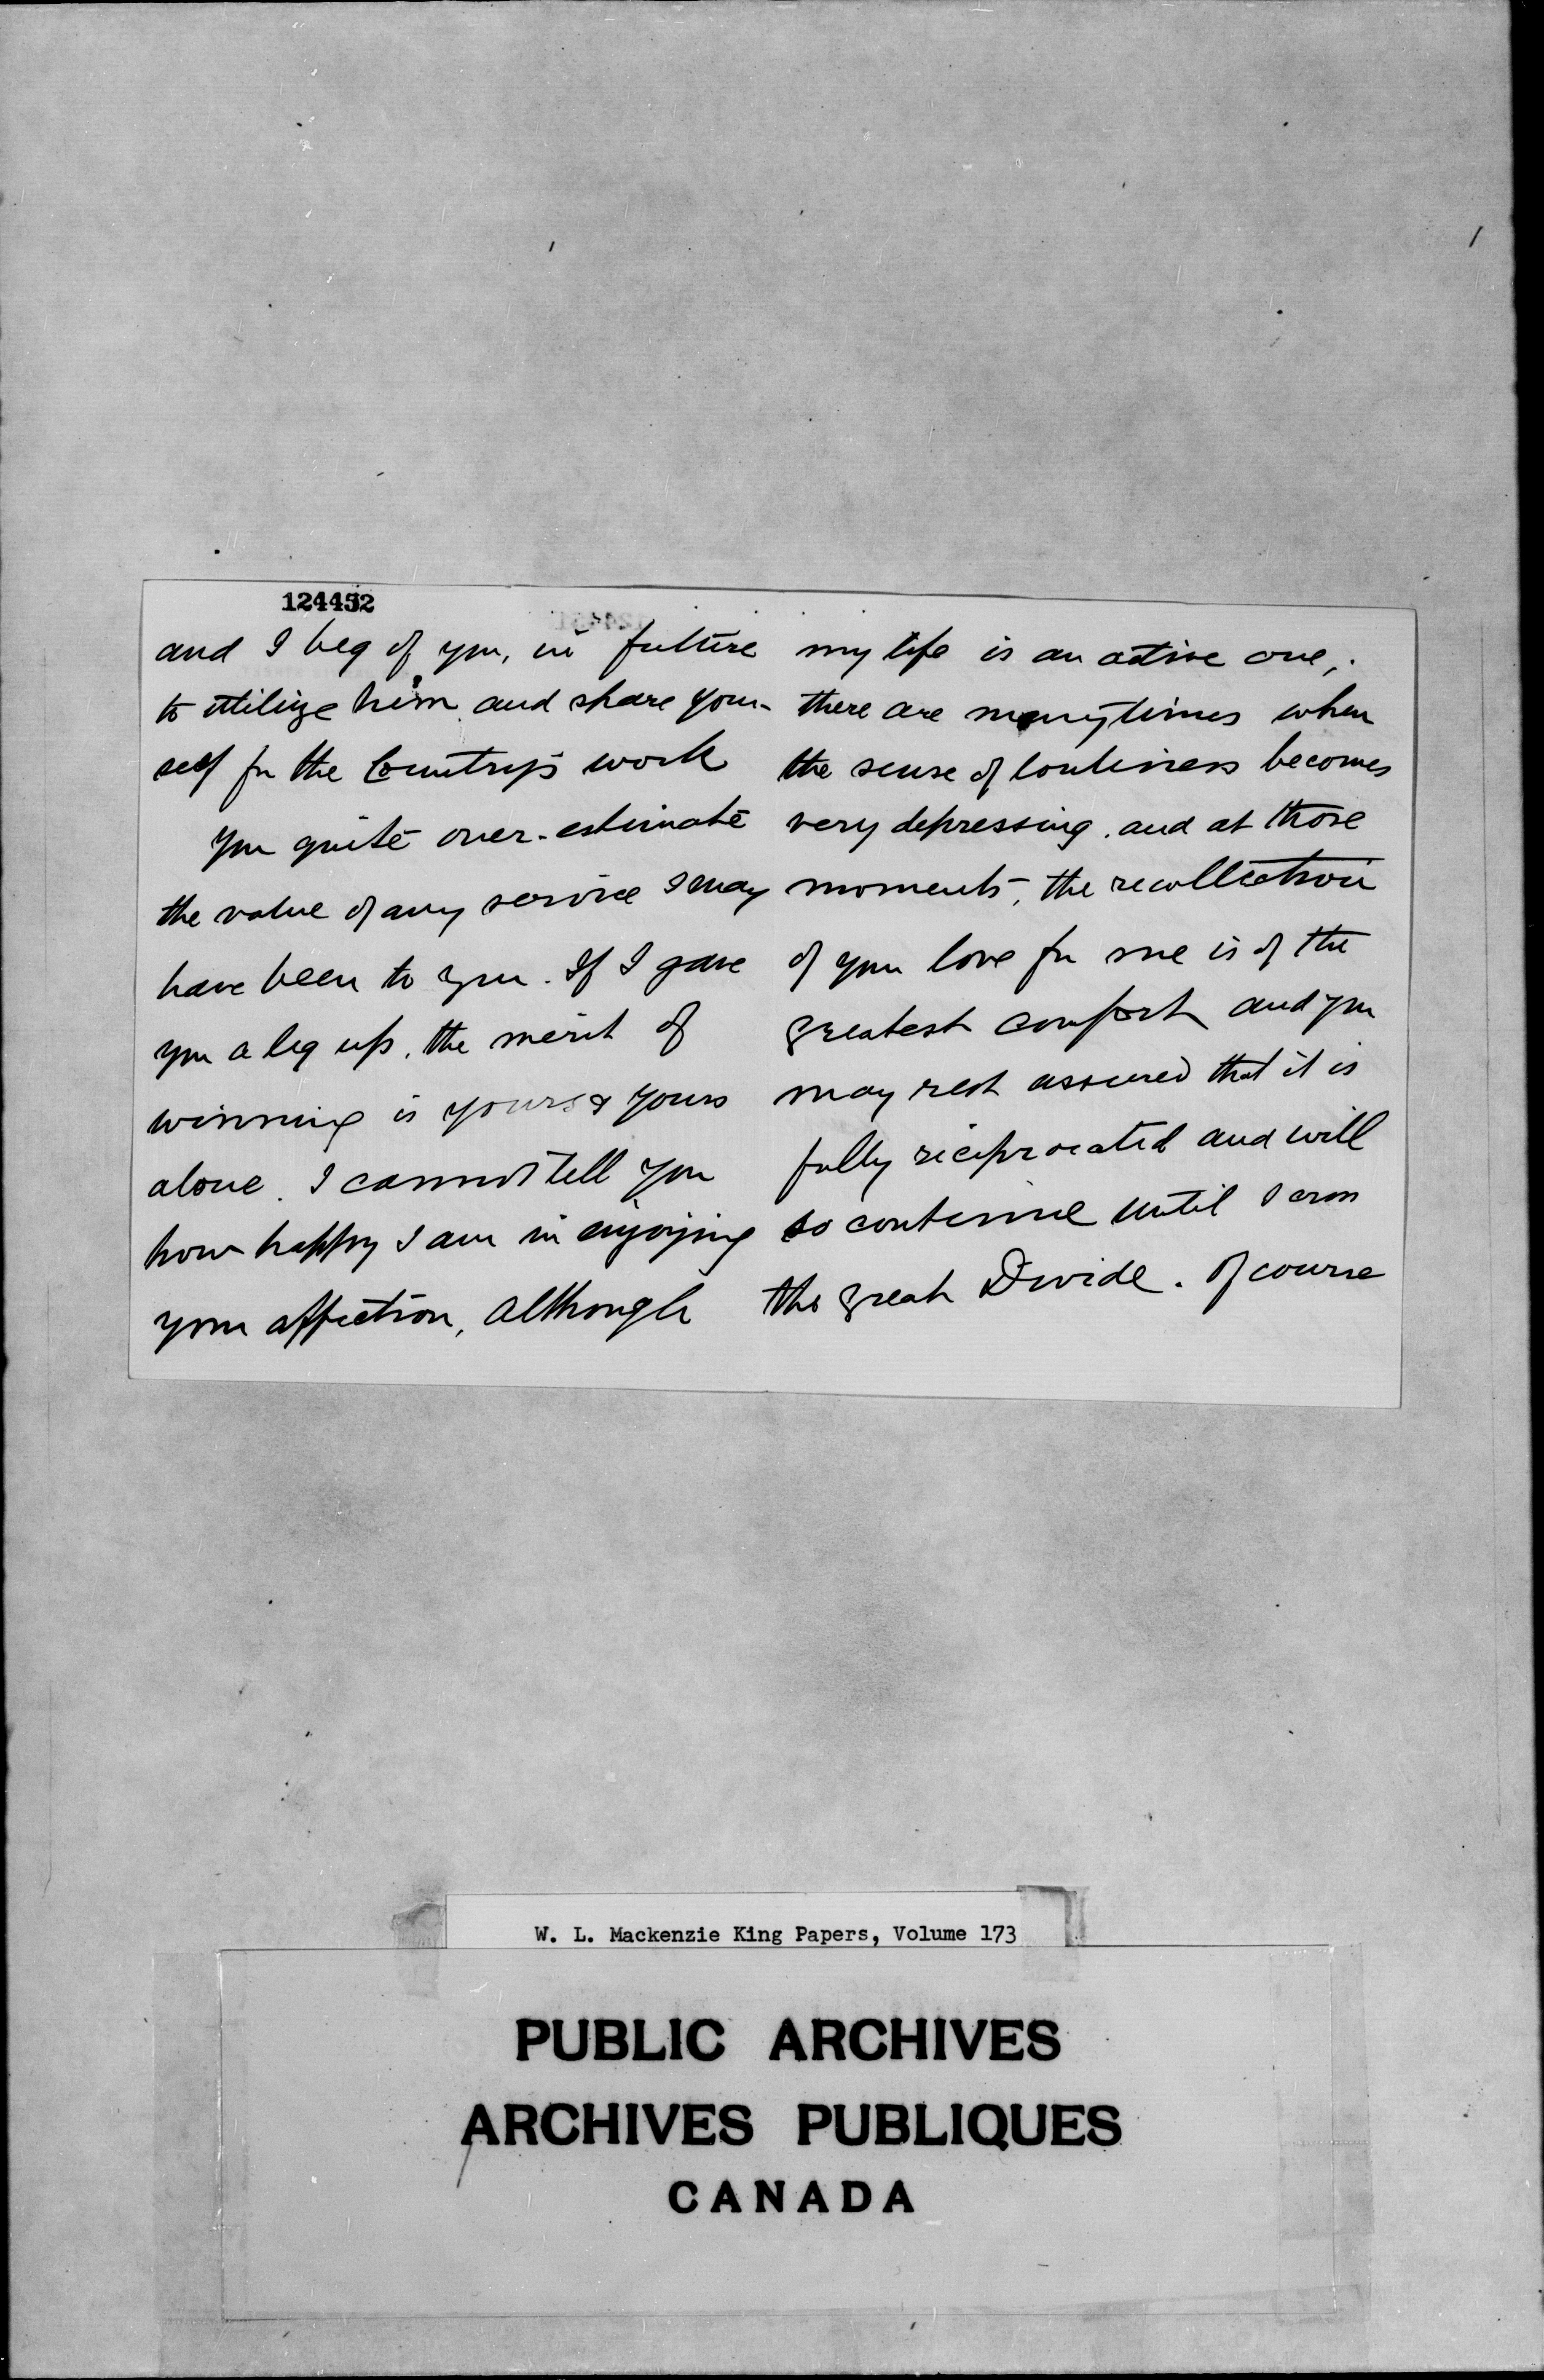 124452
and I beg of you, in future
to utilize him and share your-
self for the Country's work
You quite over-estimate
the value of any service I may
have been to you. If I gave
you a leg up, the merit of
winning is yours & yours
alone. I cannot tell you
how happy I am in enjoying
your affection, although
my life is an active one,
there are many times when
the sense of lonliness becomes
very depressing, and at those
moments, the recollection
of your love for me is of the
greatest comfort and you
may rest assured that it is
fully reciprocated and will
so continue until I cross
the great Divide. Of course
W. L. Mackenzie King Papers, Volume 173
PUBLIC ARCHIVES
ARCHIVES PUBLIQUES
CANADA